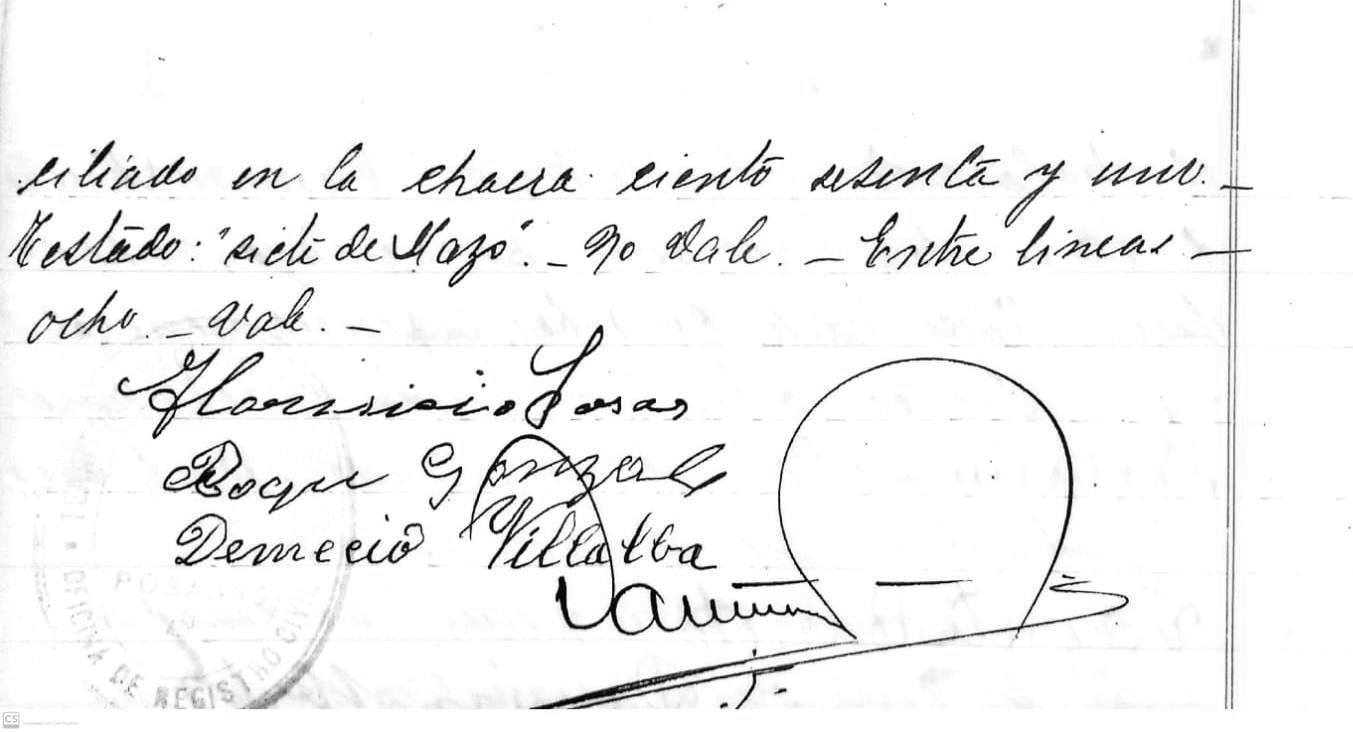 ciliado en la chacra ciento sesenta y uno. _
Testado: "siete de Marzo". _ No Vale. _ Entre lineas _
ocho _ Vale. _
Sosas
Roque Gonzalez
Demecio Villalba
POSADAS
OFICINA DE REGISTRO CIVIL
CS